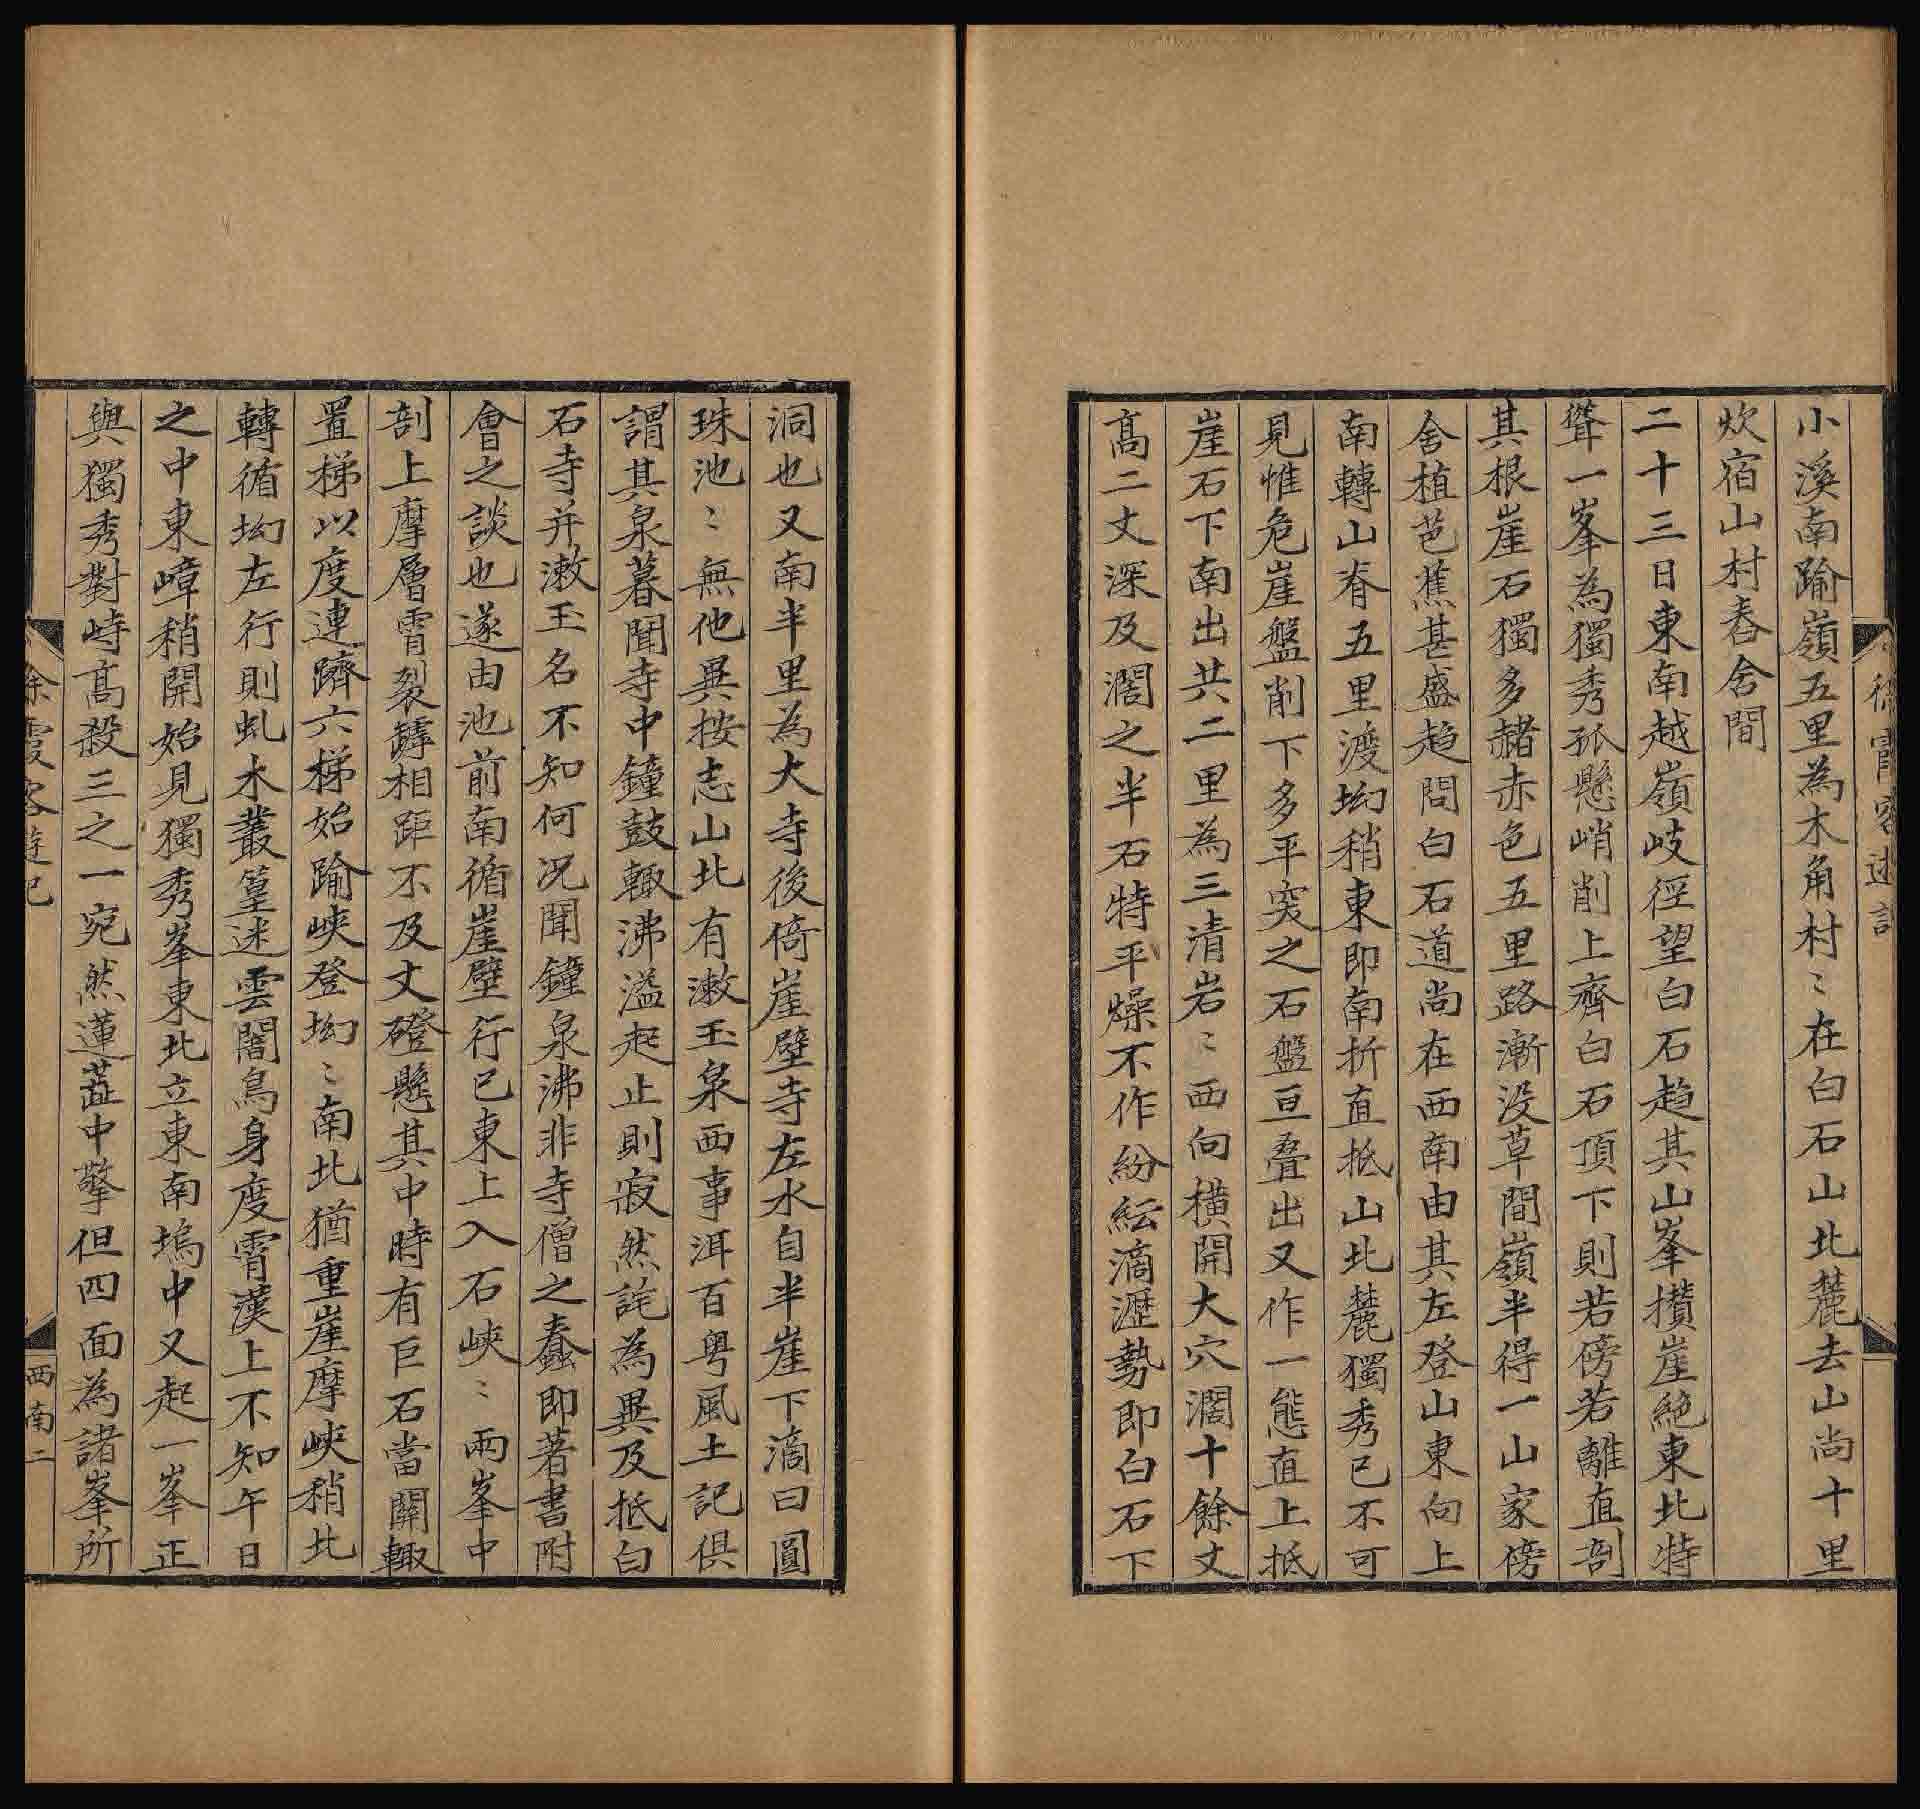 徐霞客遊記
小溪南踰嶺五里為木角村〻在白石山北麓去山尚十里
炊宿山村舂舍間
二十三日東南越嶺岐徑望白石趨其山峯攅崖絕東北特
聳一峯為獨秀孤懸峭削上齊白石頂下則若傍若離直剖
其根崖石獨多赭赤色五里路漸没草間嶺半得一山家傍
舍植芭蕉甚盛趨問白石道尚在西南由其左登山東向上
南轉山脊五里渡坳稍東即南折直抵山北麓獨秀已不可
見惟危崖盤削下多平突之石盤亘叠出又作一態直上抵
崖石下南出共二里為三清岩〻西向橫開大穴濶十餘丈
髙二丈深及濶之半石特平燥不作紛紜滴瀝勢即白石下
洞也又南半里為大寺後倚崖壁寺左水自半崖下滴曰圓
珠池〻無他異按志山北有漱玉泉西事洱百粤風土記俱
謂其泉暮聞寺中鐘鼓輙沸溢起止則寂然詫為異及抵白
石寺并漱玉名不知何况聞鐘泉沸非寺僧之蠢即著書附
會之談也遂由池前南循崖壁行已東上入石峽〻兩峯中
剖上摩層霄裂罅相距不及丈磴懸其中時有巨石當關輙
置梯以度連躋六梯始踰峽登坳〻南北猶重崖摩峽稍北
轉循坳左行則虬木叢篁迷雲闇鳥身度霄漢上不知午日
之中東嶂稍開始見獨秀峯東北立東南塢中又起一峯正
與獨秀對峙髙殺三之一宛然蓮蕋中擎但四面為諸峯所
徐霞客遊記
西南二